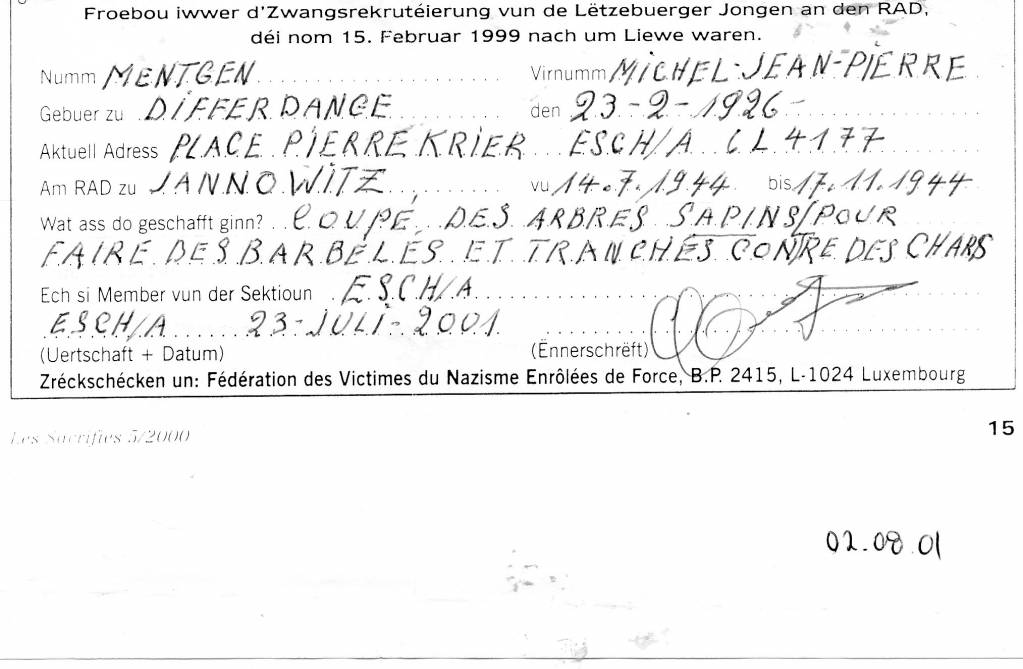 Froebou iwwer d'Zwangsrekrutéierung vun de Lëtzebuerger Jongen an den RAD,
déi nom 15. Februar 1999 nach um Liewe waren.
Numm MENTGEN Virnumm MICHEL-JEAN-PIERRE
Gebuer zu DIFFERDANGE den 23-2-1926-
Aktuell Adress PLACE PIERRE KRIER ESCH/A CL 4177
Am RAD zu JANNOWITZ, vu 14.7.1944 bis 17.11.1944
Wat ass do geschafft ginn? COUPÉ, DES ARBRES SAPINS/POUR
FAIRE DES BARBELÉS ET TRANCHÉS CONTRE DES CHARS
Ech si Member vun der Sektioun ESCH/A
ESCH/A 23-JULI-2001
(Uertschaft + Datum) (Ënnerschrëft)
Zréckschécken un: Fédération des Victimes du Nazisme Enrôlées de Force, B.P. 2415, L-1024 Luxembourg
Les Sacrifiés 5/2000 15
02.08.01